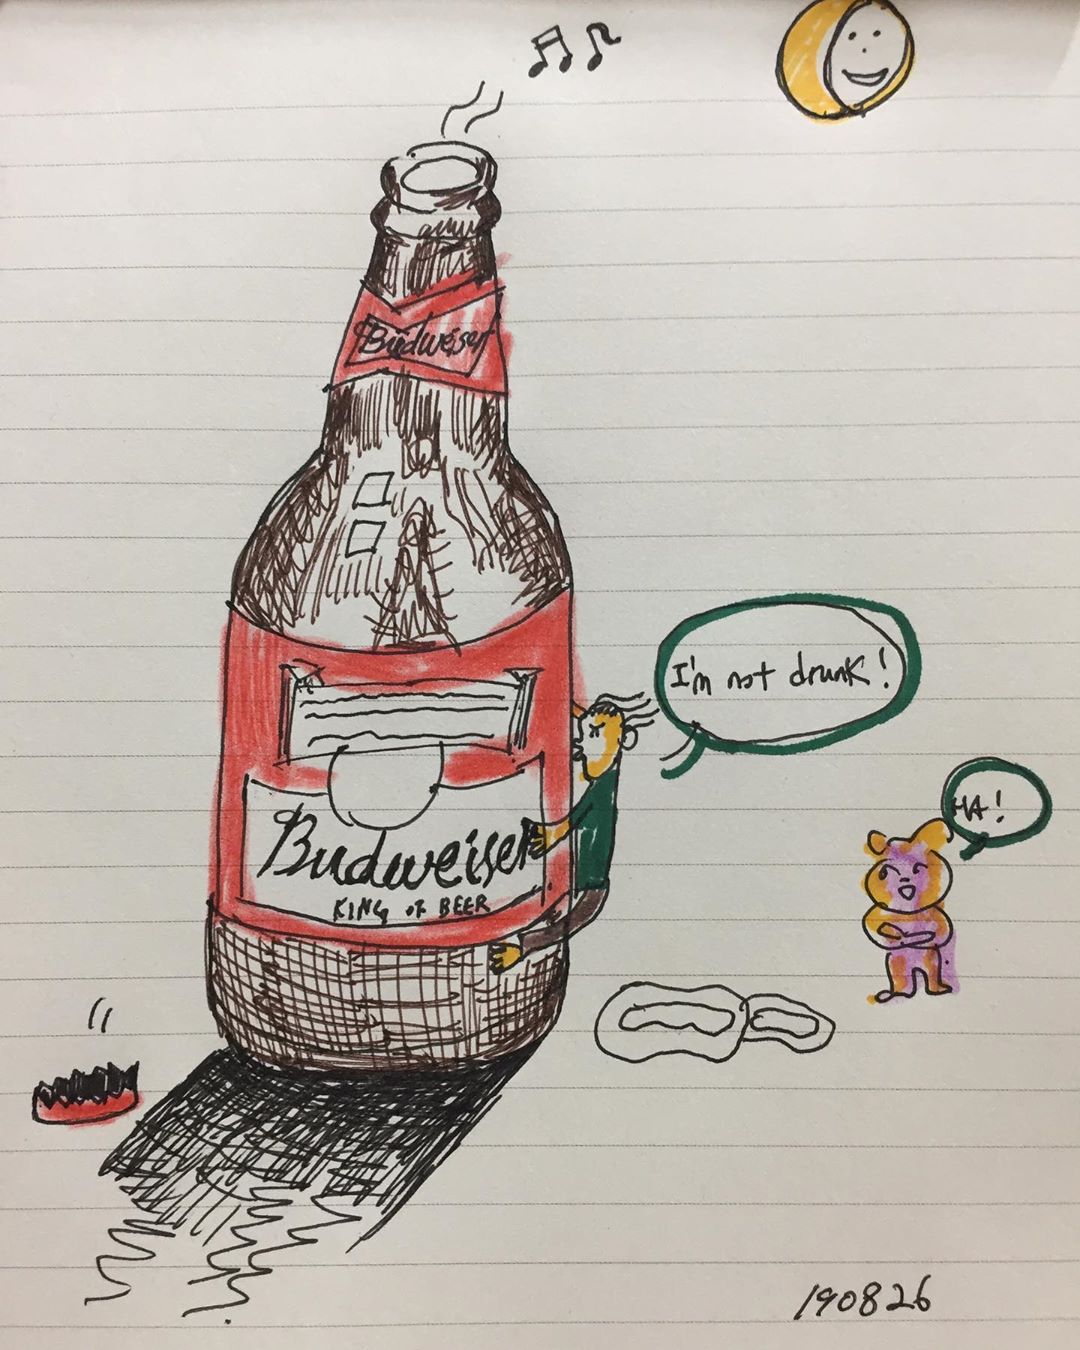 Budweiser
I'm not drunk!
HA!
Budweiser
KING OF BEER
190826